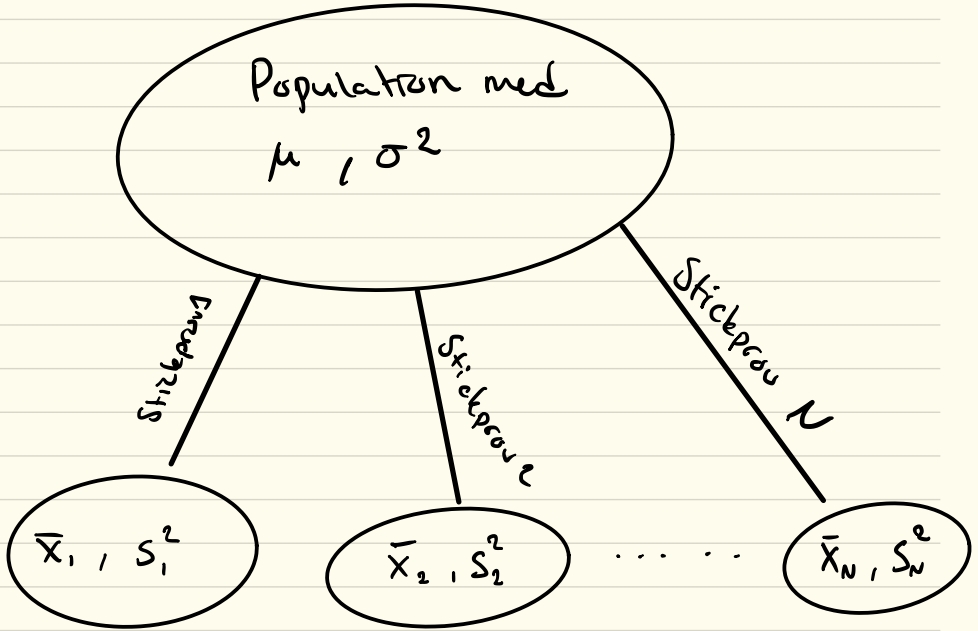 Population med
μ , σ²
Stickprov 1
Stickprov 2
Stickprov N
x̄₁ , S₁²
x̄₂ , S₂²
. . . . . .
x̄_N , S_N²